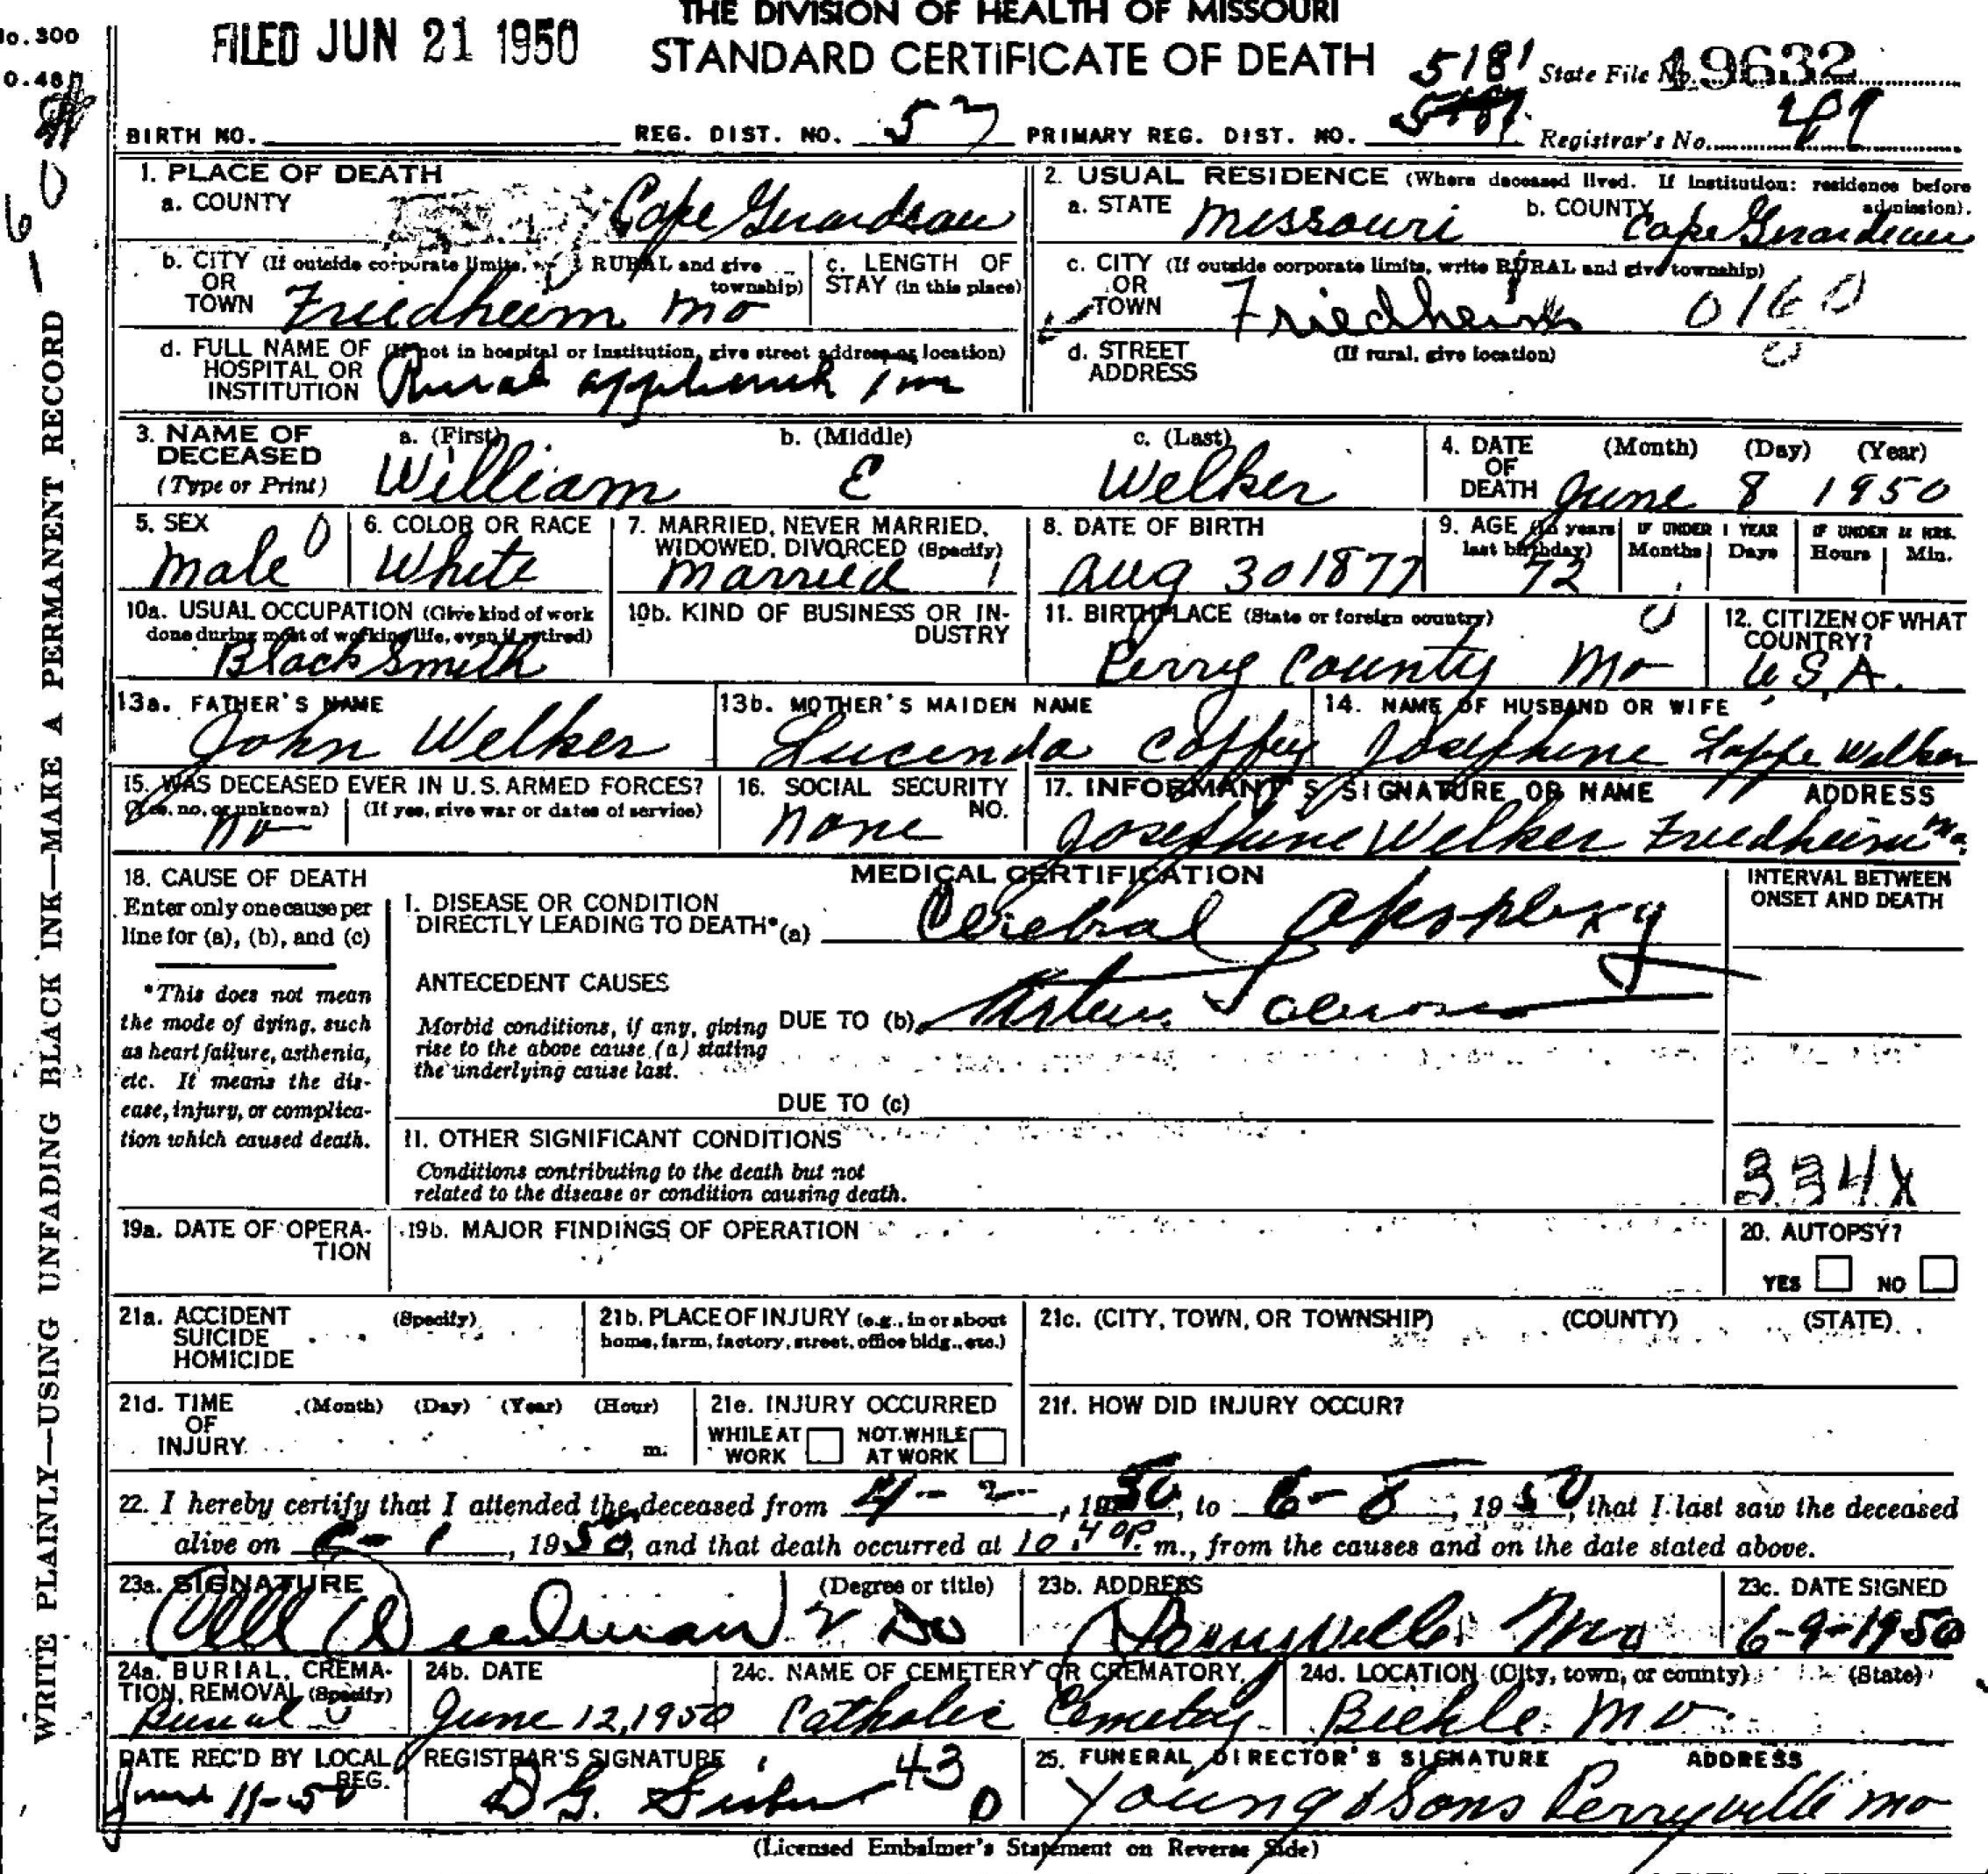 THE DIVISION OF HEALTH OF MISSOURI
FILED JUN 21 1950
STANDARD CERTIFICATE OF DEATH
5181 State File No. 19632
BIRTH NO. REG. DIST. NO. 57 PRIMARY REG. DIST. NO. Registrar's No.
1. PLACE OF DEATH
a. COUNTY Cape Girardeau
2. USUAL RESIDENCE (Where deceased lived. If institution: residence before admission).
a. STATE Missouri b. COUNTY Cape Girardeau
b. CITY OR TOWN (If outside corporate limits, RURAL and give township) Friedheim Mo
c. LENGTH OF STAY (in this place)
c. CITY OR TOWN (If outside corporate limits, write RURAL and give township) Friedheim 0160
d. FULL NAME OF HOSPITAL OR INSTITUTION (If not in hospital or institution, give street address or location) Rural
d. STREET ADDRESS (If rural, give location)
3. NAME OF DECEASED (Type or Print)
a. (First) William b. (Middle) E c. (Last) Welker
4. DATE OF DEATH (Month) (Day) (Year) June 8 1950
5. SEX Male 0
6. COLOR OR RACE White
7. MARRIED, NEVER MARRIED, WIDOWED, DIVORCED (Specify) Married 1
8. DATE OF BIRTH Aug 30 1877
9. AGE (In years last birthday) 72 IF UNDER 1 YEAR Months Days IF UNDER 24 HRS. Hours Min.
10a. USUAL OCCUPATION (Give kind of work done during most of working life, even if retired) BlackSmith
10b. KIND OF BUSINESS OR INDUSTRY
11. BIRTHPLACE (State or foreign country) Perry County Mo
12. CITIZEN OF WHAT COUNTRY? U.S.A.
13a. FATHER'S NAME John Welker
13b. MOTHER'S MAIDEN NAME Lucinda Coffey
14. NAME OF HUSBAND OR WIFE Josephine Lappe Welker
15. WAS DECEASED EVER IN U.S. ARMED FORCES? (Yes, no, or unknown) no (If yes, give war or dates of service)
16. SOCIAL SECURITY NO. none
17. INFORMANT'S SIGNATURE OR NAME ADDRESS Josephine Welker Friedheim Mo.
18. CAUSE OF DEATH
Enter only one cause per line for (a), (b), and (c)
*This does not mean the mode of dying, such as heart failure, asthenia, etc. It means the disease, injury, or complication which caused death.
MEDICAL CERTIFICATION
INTERVAL BETWEEN ONSET AND DEATH
I. DISEASE OR CONDITION DIRECTLY LEADING TO DEATH* (a) Cerebral Apoplexy
ANTECEDENT CAUSES
Morbid conditions, if any, giving rise to the above cause (a) stating the underlying cause last.
DUE TO (b)
DUE TO (c)
II. OTHER SIGNIFICANT CONDITIONS
Conditions contributing to the death but not related to the disease or condition causing death.
334X
19a. DATE OF OPERATION
19b. MAJOR FINDINGS OF OPERATION
20. AUTOPSY? YES NO
21a. ACCIDENT SUICIDE HOMICIDE (Specify)
21b. PLACE OF INJURY (e.g., in or about home, farm, factory, street, office bldg., etc.)
21c. (CITY, TOWN, OR TOWNSHIP) (COUNTY) (STATE)
21d. TIME OF INJURY (Month) (Day) (Year) (Hour) m.
21e. INJURY OCCURRED WHILE AT WORK NOT WHILE AT WORK
21f. HOW DID INJURY OCCUR?
22. I hereby certify that I attended the deceased from 4-2-, 1950, to 6-8, 1950, that I last saw the deceased
alive on 6-1, 1950, and that death occurred at 10:40P. m., from the causes and on the date stated above.
23a. SIGNATURE (Degree or title) DO
23b. ADDRESS Perryville Mo
23c. DATE SIGNED 6-9-1950
24a. BURIAL, CREMATION, REMOVAL (Specify) Burial
24b. DATE June 12, 1950
24c. NAME OF CEMETERY OR CREMATORY Catholic Cemetery
24d. LOCATION (City, town, or county) (State) Biehle Mo.
DATE REC'D BY LOCAL REG. 11-50
REGISTRAR'S SIGNATURE D.G. 43 0
25. FUNERAL DIRECTOR'S SIGNATURE ADDRESS Young & Sons Perryville Mo
(Licensed Embalmer's Statement on Reverse Side)
WRITE PLAINLY—USING UNFADING BLACK INK—MAKE A PERMANENT RECORD